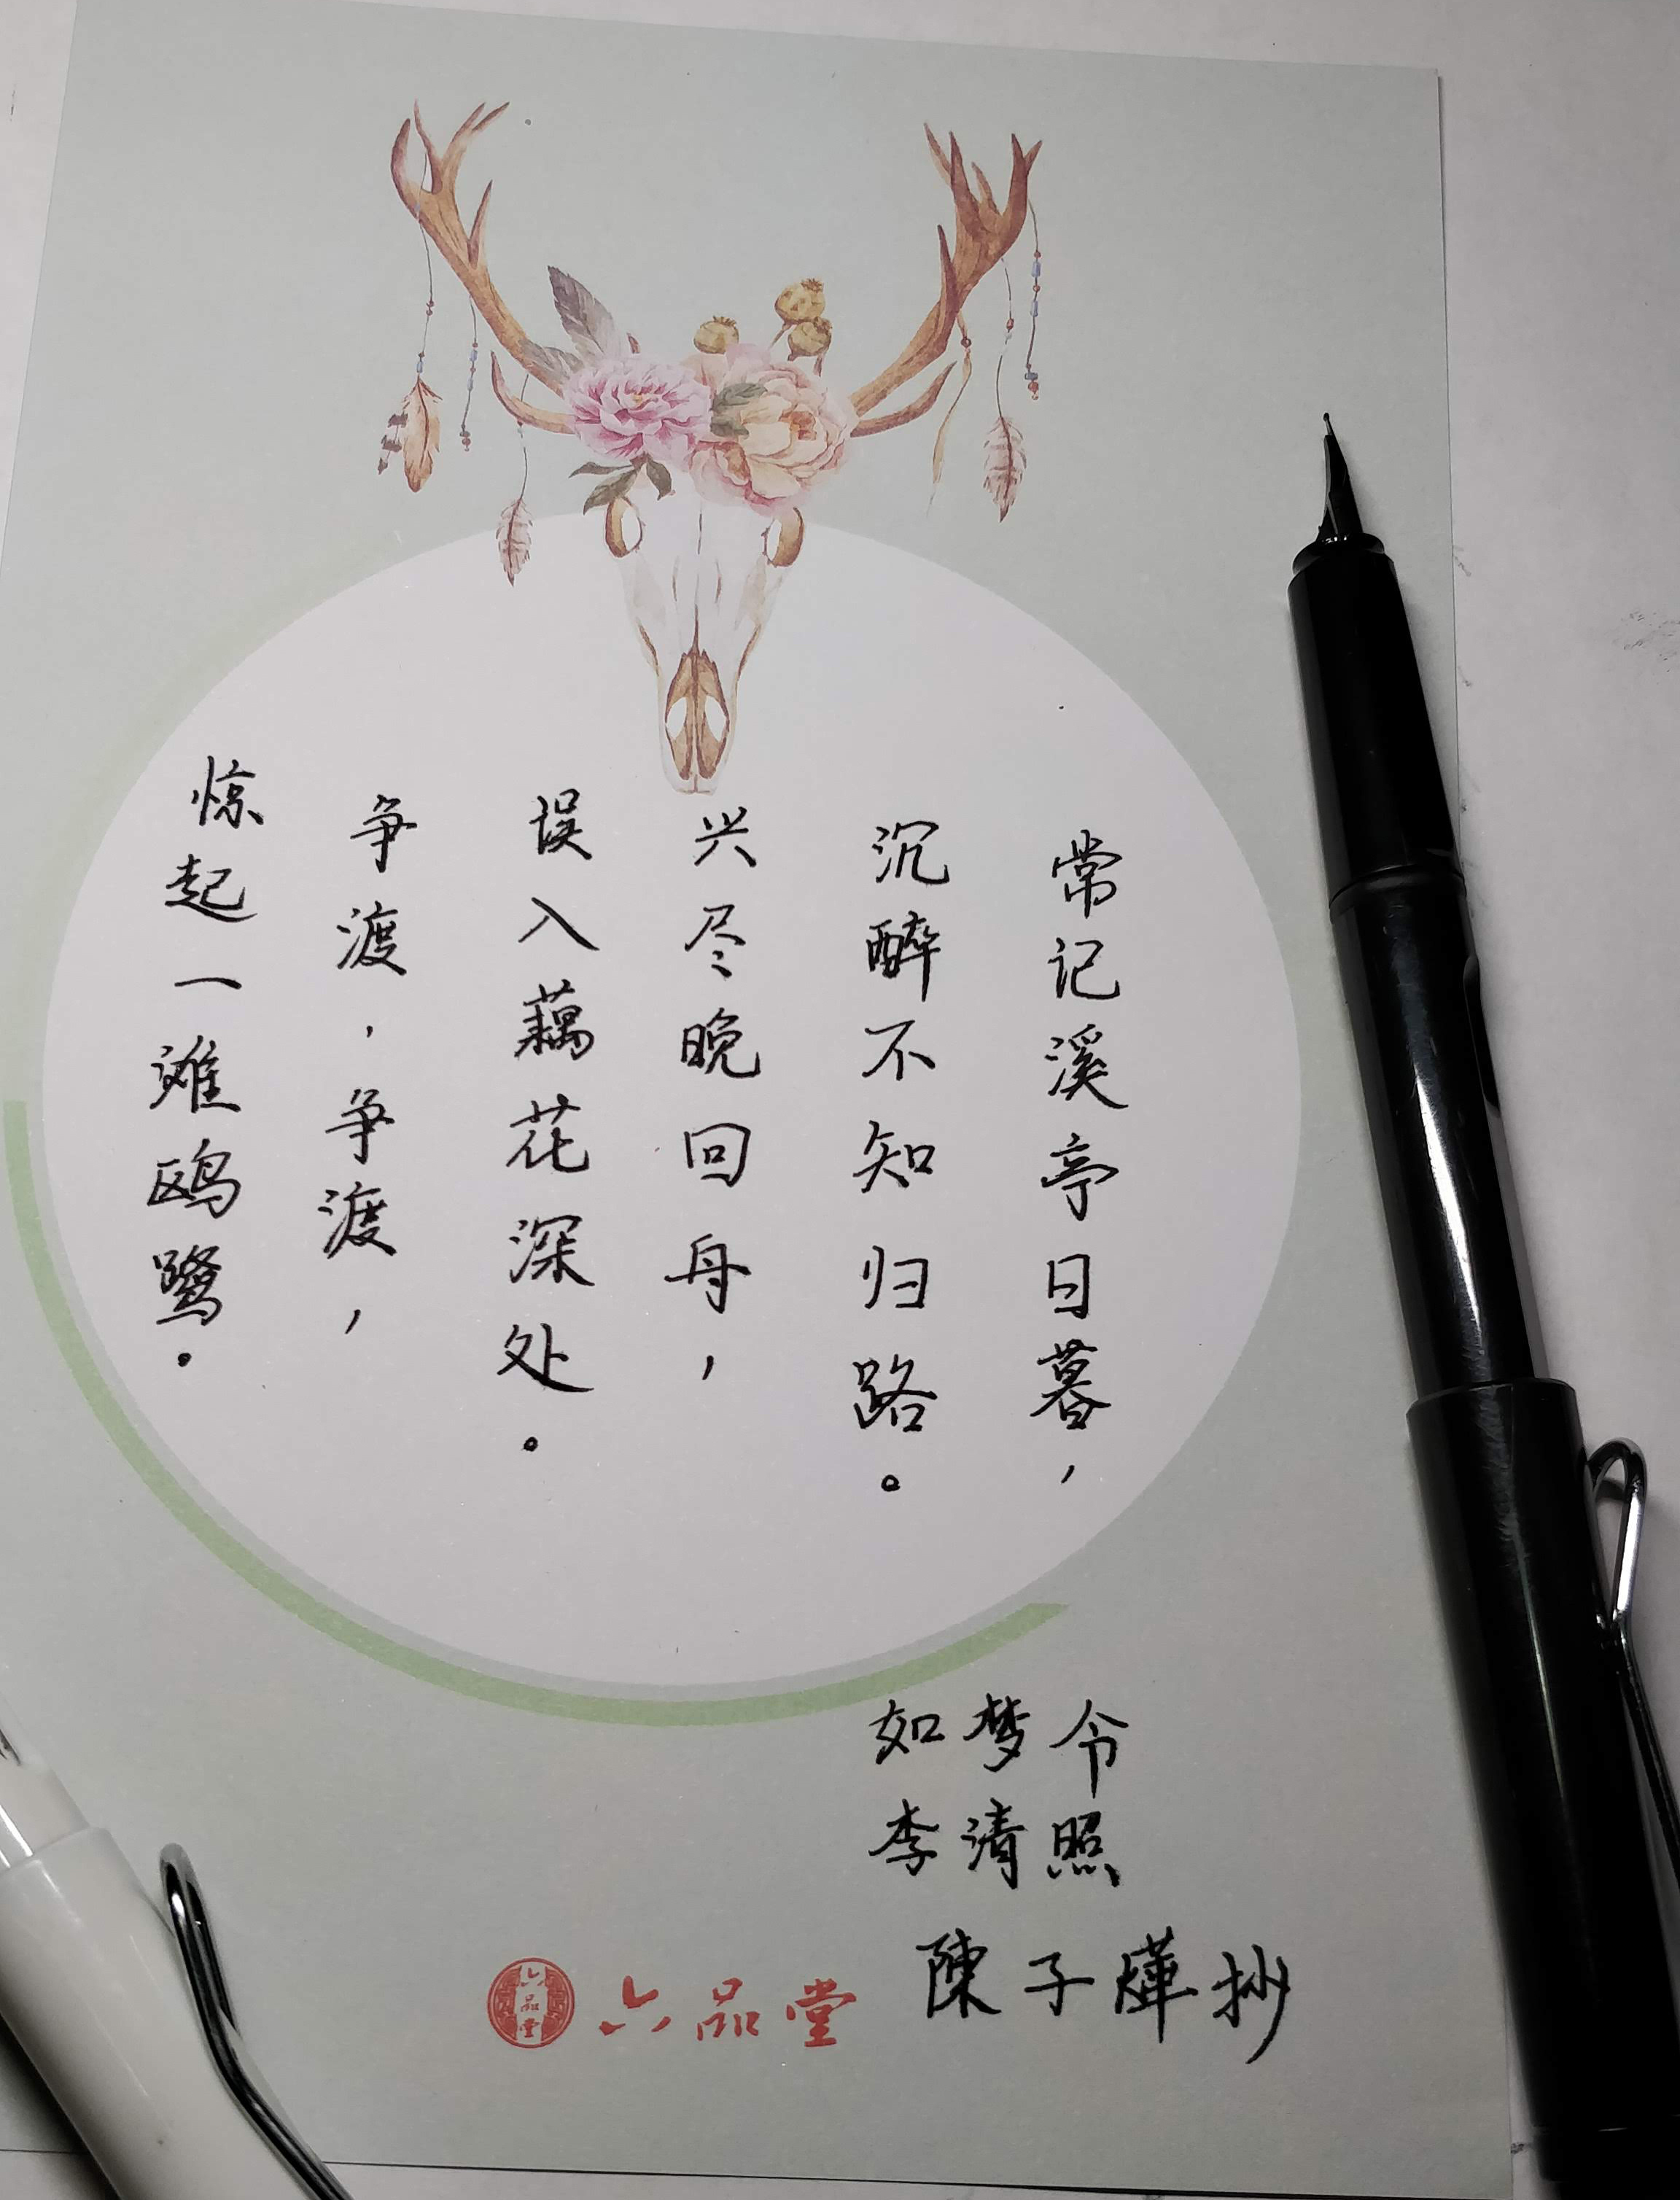 常记溪亭日暮，
沉醉不知归路。
兴尽晚回舟，
误入藕花深处。
争渡，争渡，
惊起一滩鸥鹭。
如梦令
李清照
陳子燁抄
六品堂
六品堂